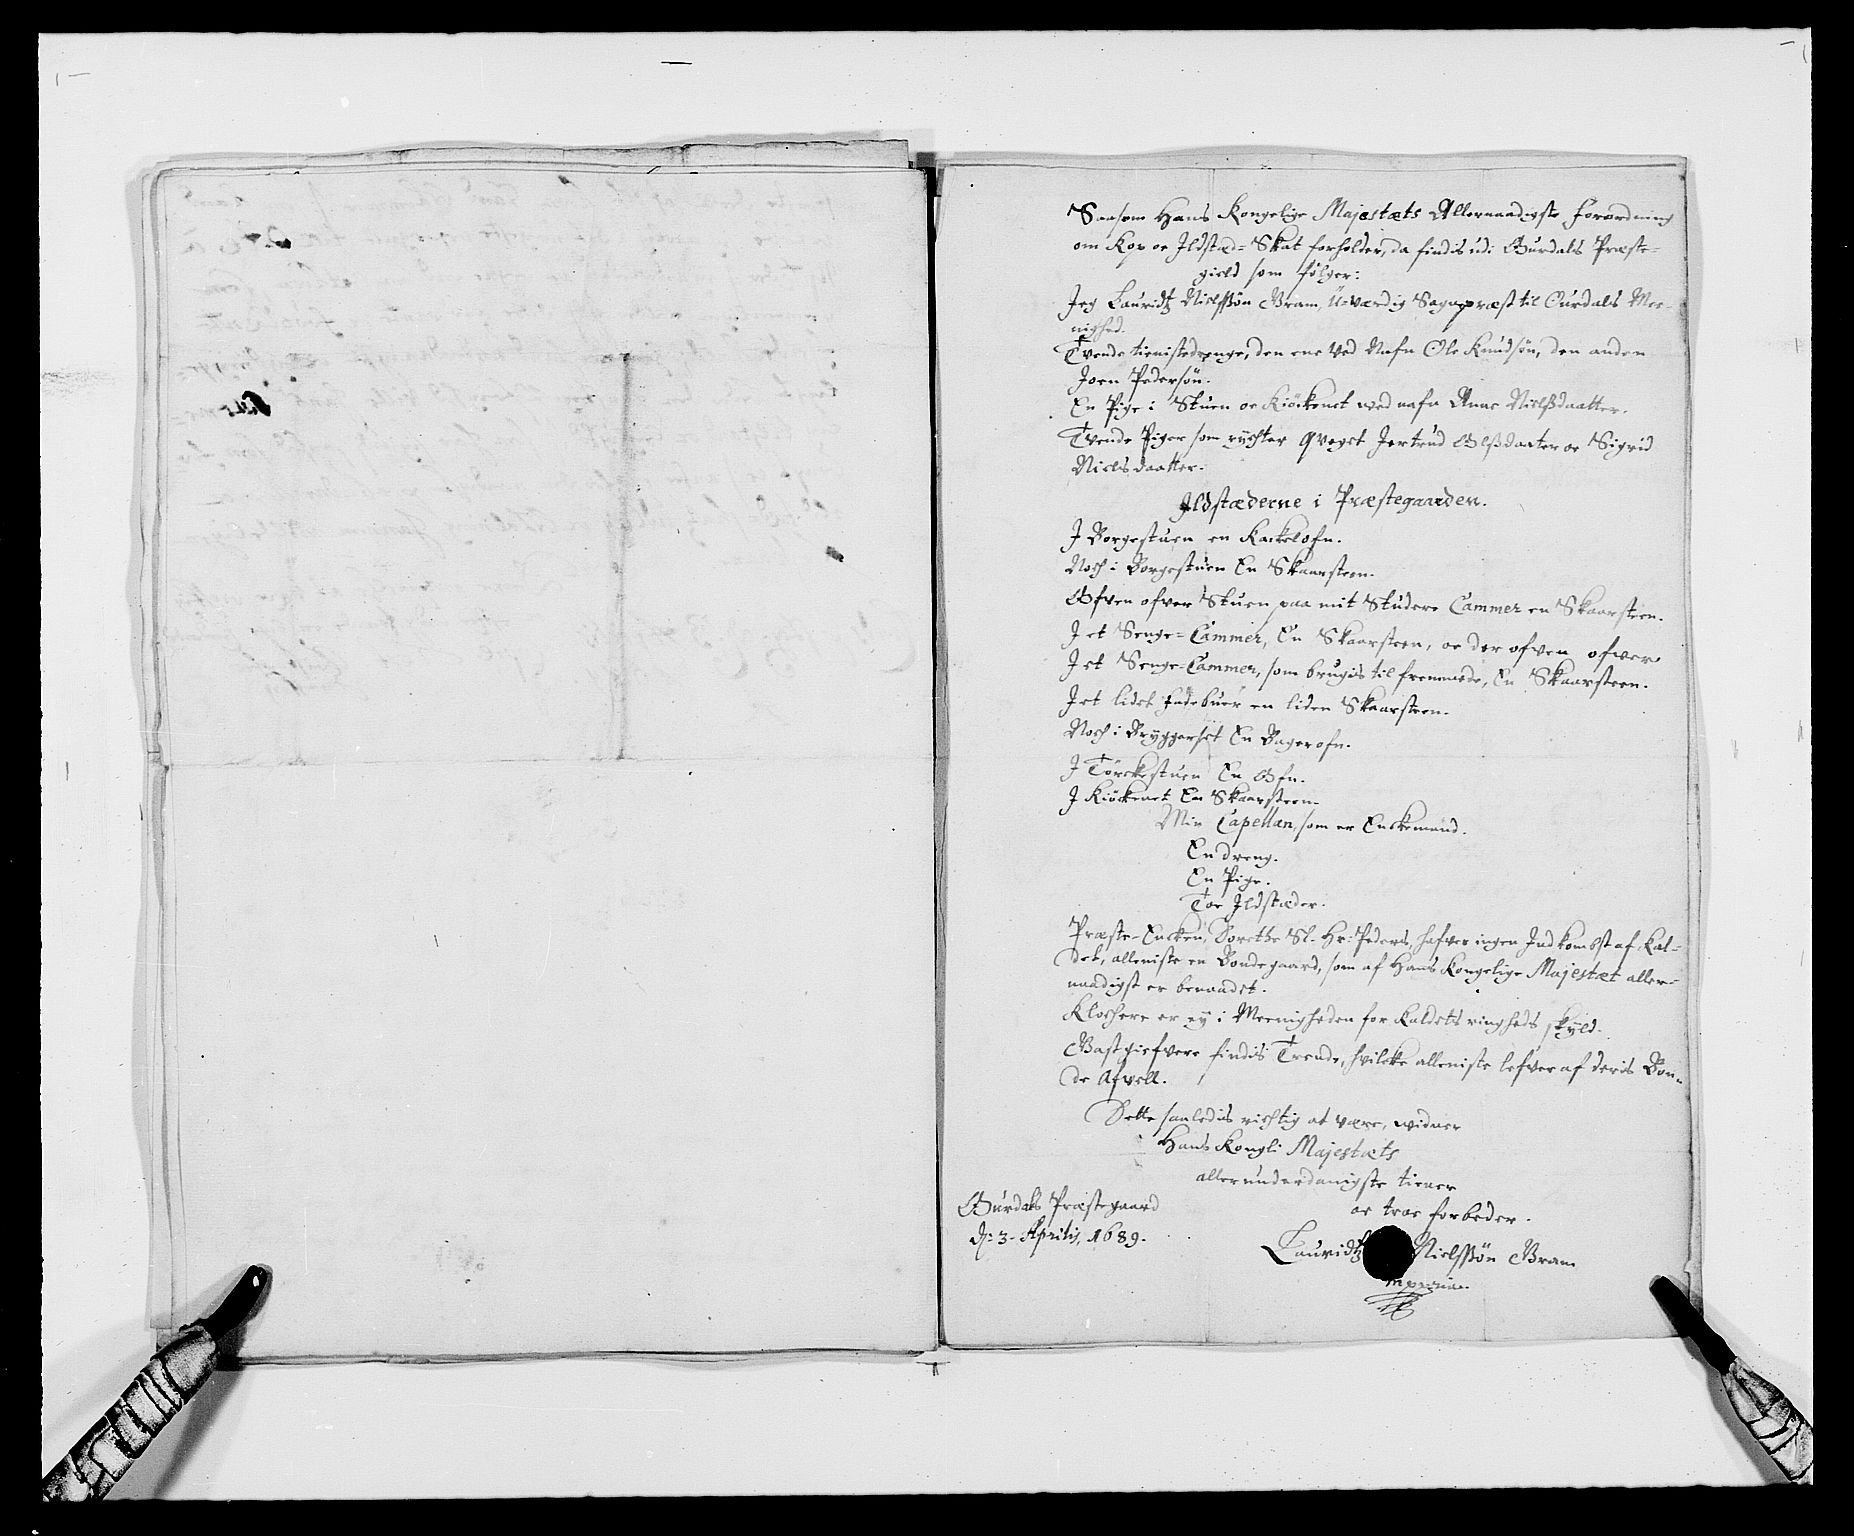 Saasom Hans Kongelige Majestæts Allernaadigste forordning
om Kop oc Jldstæd=Skat forholder, da findis udi Ourdals Præste=
gield som følger:
Jeg Lauridtz Nielssøn Gram, U=værdig Sognepræst til Ourdals Mee=
nighed.
Tvende tienistedrenge, den ene ved Nafn Ole Knudsøn, den anden
Joen Pedersøn.
En Pige i Stuen oc Kiöckenet wed nafn Anne Nielsdaatter.
Tvende Piger som rychter qveget Jertrud Olsdaatter oc Sigrid
Nielsdaatter.
Jldstæderne i Præstegaarden.
J Borgestuen en Kackelofn.
Noch i Borgestuen En Skaarsteen.
Ofven ofver Stuen paa mit Studere Cammer en Skaarsteen.
J et Senge=Cammer, En Skaarsteen, oc der ofven ofver
J et Senge=Cammer, som brugis til fremmede, En Skaarsteen.
J et lidet Fadebuer en liden Skaarsteen.
Noch i Bryggerset En Bagerofn.
J Törckestuen En Ofn.
J Kiöckenet En Skaarsteen.
Min Capellan, som er Enckemand.
En dreng.
En Pige.
Toe Jldstæder.
Præste-Encken, Dorethe Sl. Hr: Peders, hafver ingen Indkombst af Kal=
det, alleniste en Bondegaard, som af Hans Kongelige Majestæt aller=
naadigst er benaadet.
Klochere er ey i Meenigheden for Kaldets ringheds skyld.
Gastgiefvere findis Trende, hvilcke alleniste lefver af deris Bon=
de Afvell.
Dette saaledis richtig at være, widner
Hans Kongl: Majestæts
allerunderdanigste tiener
oc troe forbeder.
Ourdals Præstegaard
d: 3. Aprilis, 1689.
Lauridtz Nielssøn Gram
mpropria.